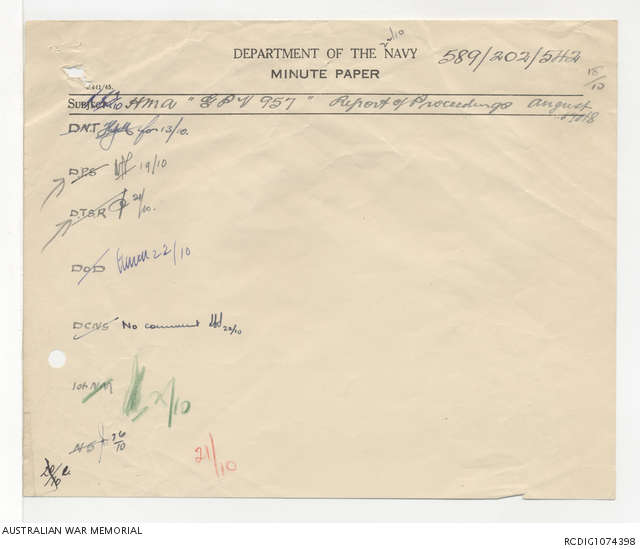 DEPARTMENT OF THE NAVY
589/202/542
MINUTE PAPER
18/10
Subject HMA "GPV 957" Report of Proceedings August 1948
D.N.T for 13/10.
D.P.S 19/10
D.T.S.R 21/10.
D o D 22/10
DCNS No comment 22/10
1st NM 2/10
NS 26/10
21/10
20/10
AUSTRALIAN WAR MEMORIAL
RCDIG1074398